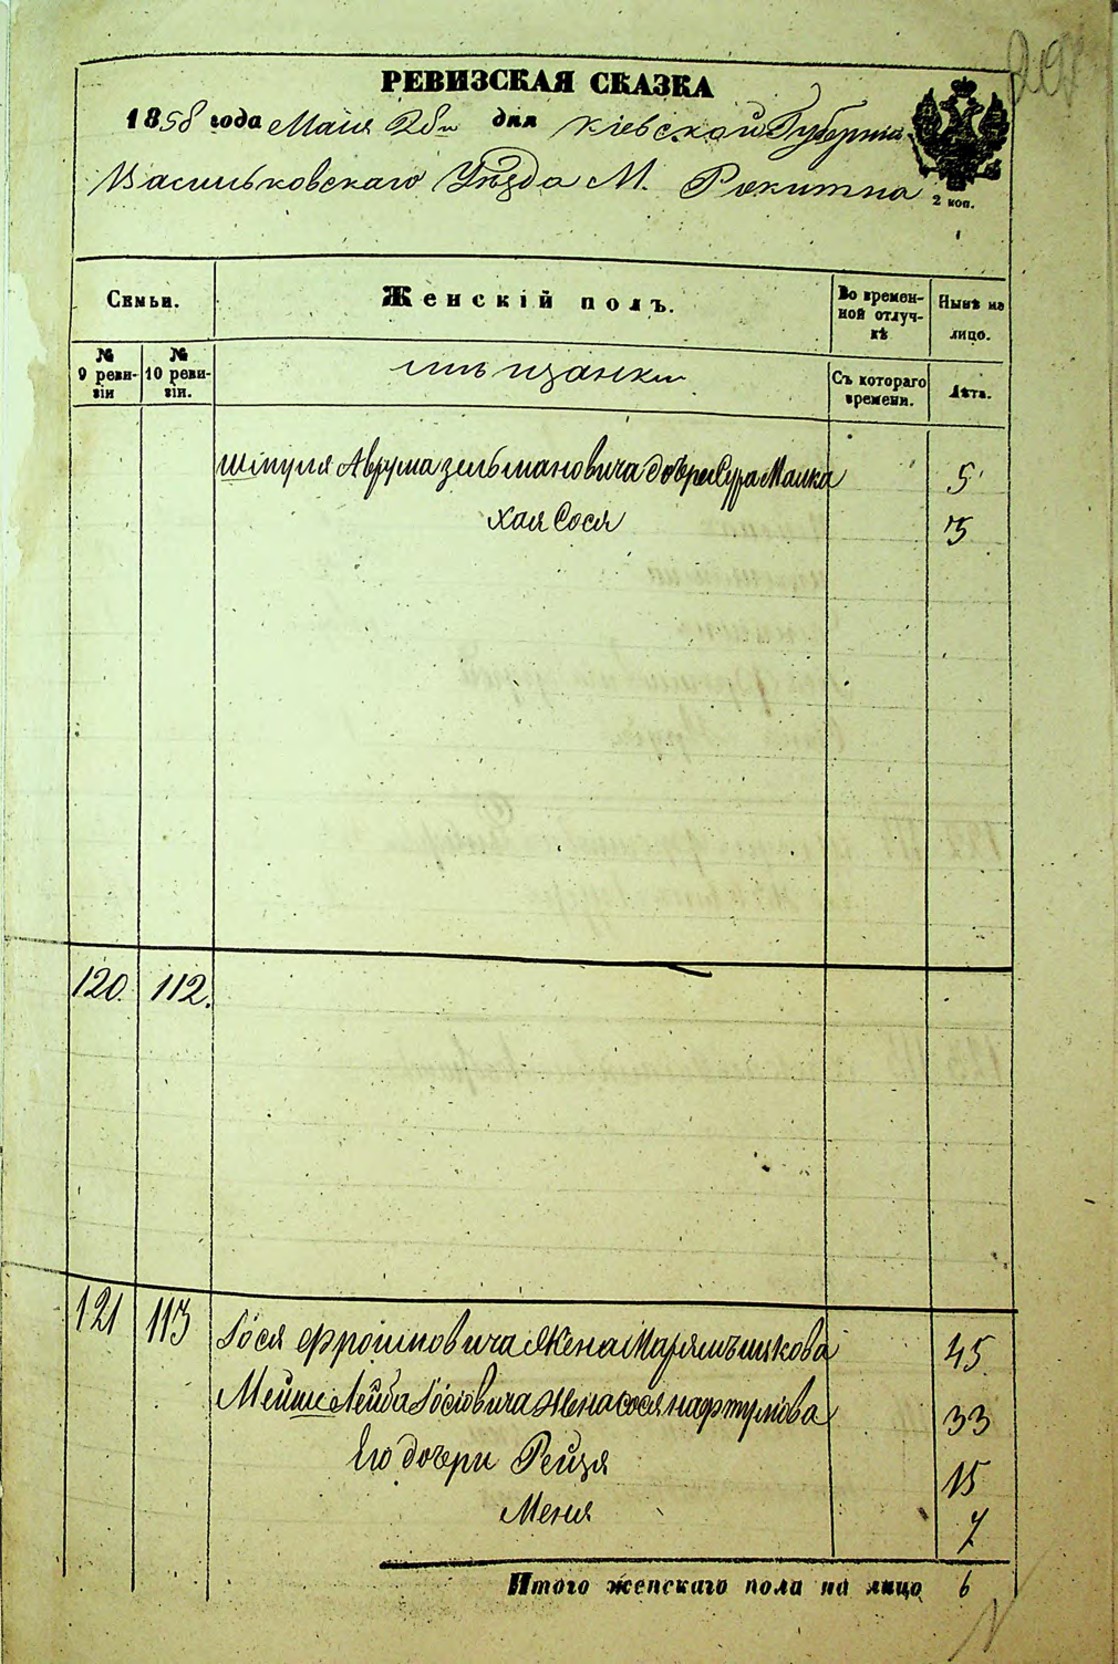 РЕВИЗСКАЯ СКАЗКА
1858 года Маия 28 дня Кіевской Губерніи
Васильковскаго Уѣзда М. Рокитна
2 коп.
Семьи.
Женскій полъ.
Во времен-
ной отлуч-
кѣ
Нынѣ на
лицо.
№
9 реви-
зіи
№
10 реви-
зіи.
мѣщанки
Съ котораго
времени.
Лѣта.
Шмуля Аврума Зельмановича дочери Сура Малка 5
Хая Сося 3
120. 112.
121 113 Іося Фроимовича Жена Марямъ 45
Мейше Лейба Іосіовича жена Сося Нафтулова 33
Его дочери Рейзя 15
Меня 7
Итого женскаго пола на лицо 6